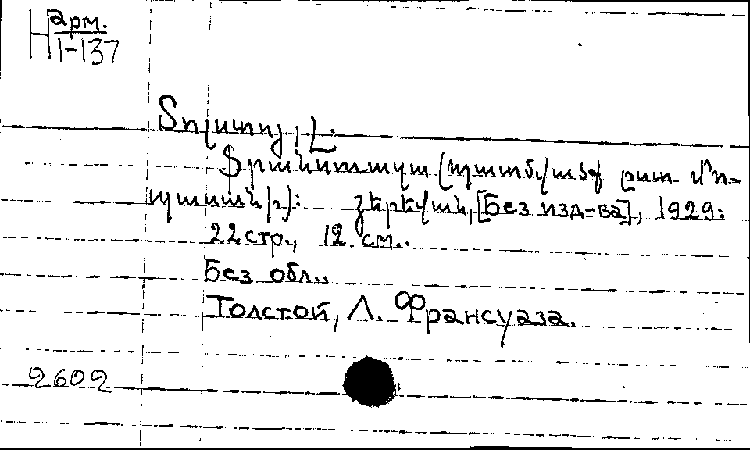 Н арм.
1-137
Տոլստոյ, Լ.
Ֆրանսուազա (պատմվածք ըստ Մո-
պասանի): Յերեվան, [Без изд-ва], 1929:
22 стр., 12 см..
Без обл..
Толстой, Л. Франсуаза.
2602